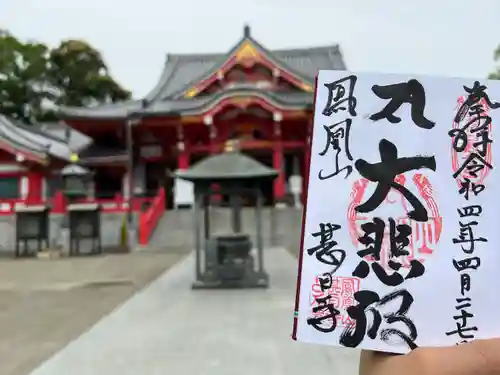 奉拝
令和四年四月二十七日
大悲殿
鳳凰山
甚目寺